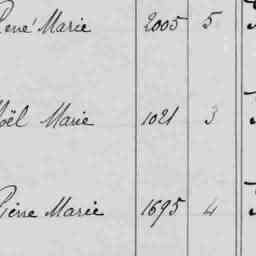 René Marie 2005 5
Noël Marie 1021 3
Pierre Marie 1695 4